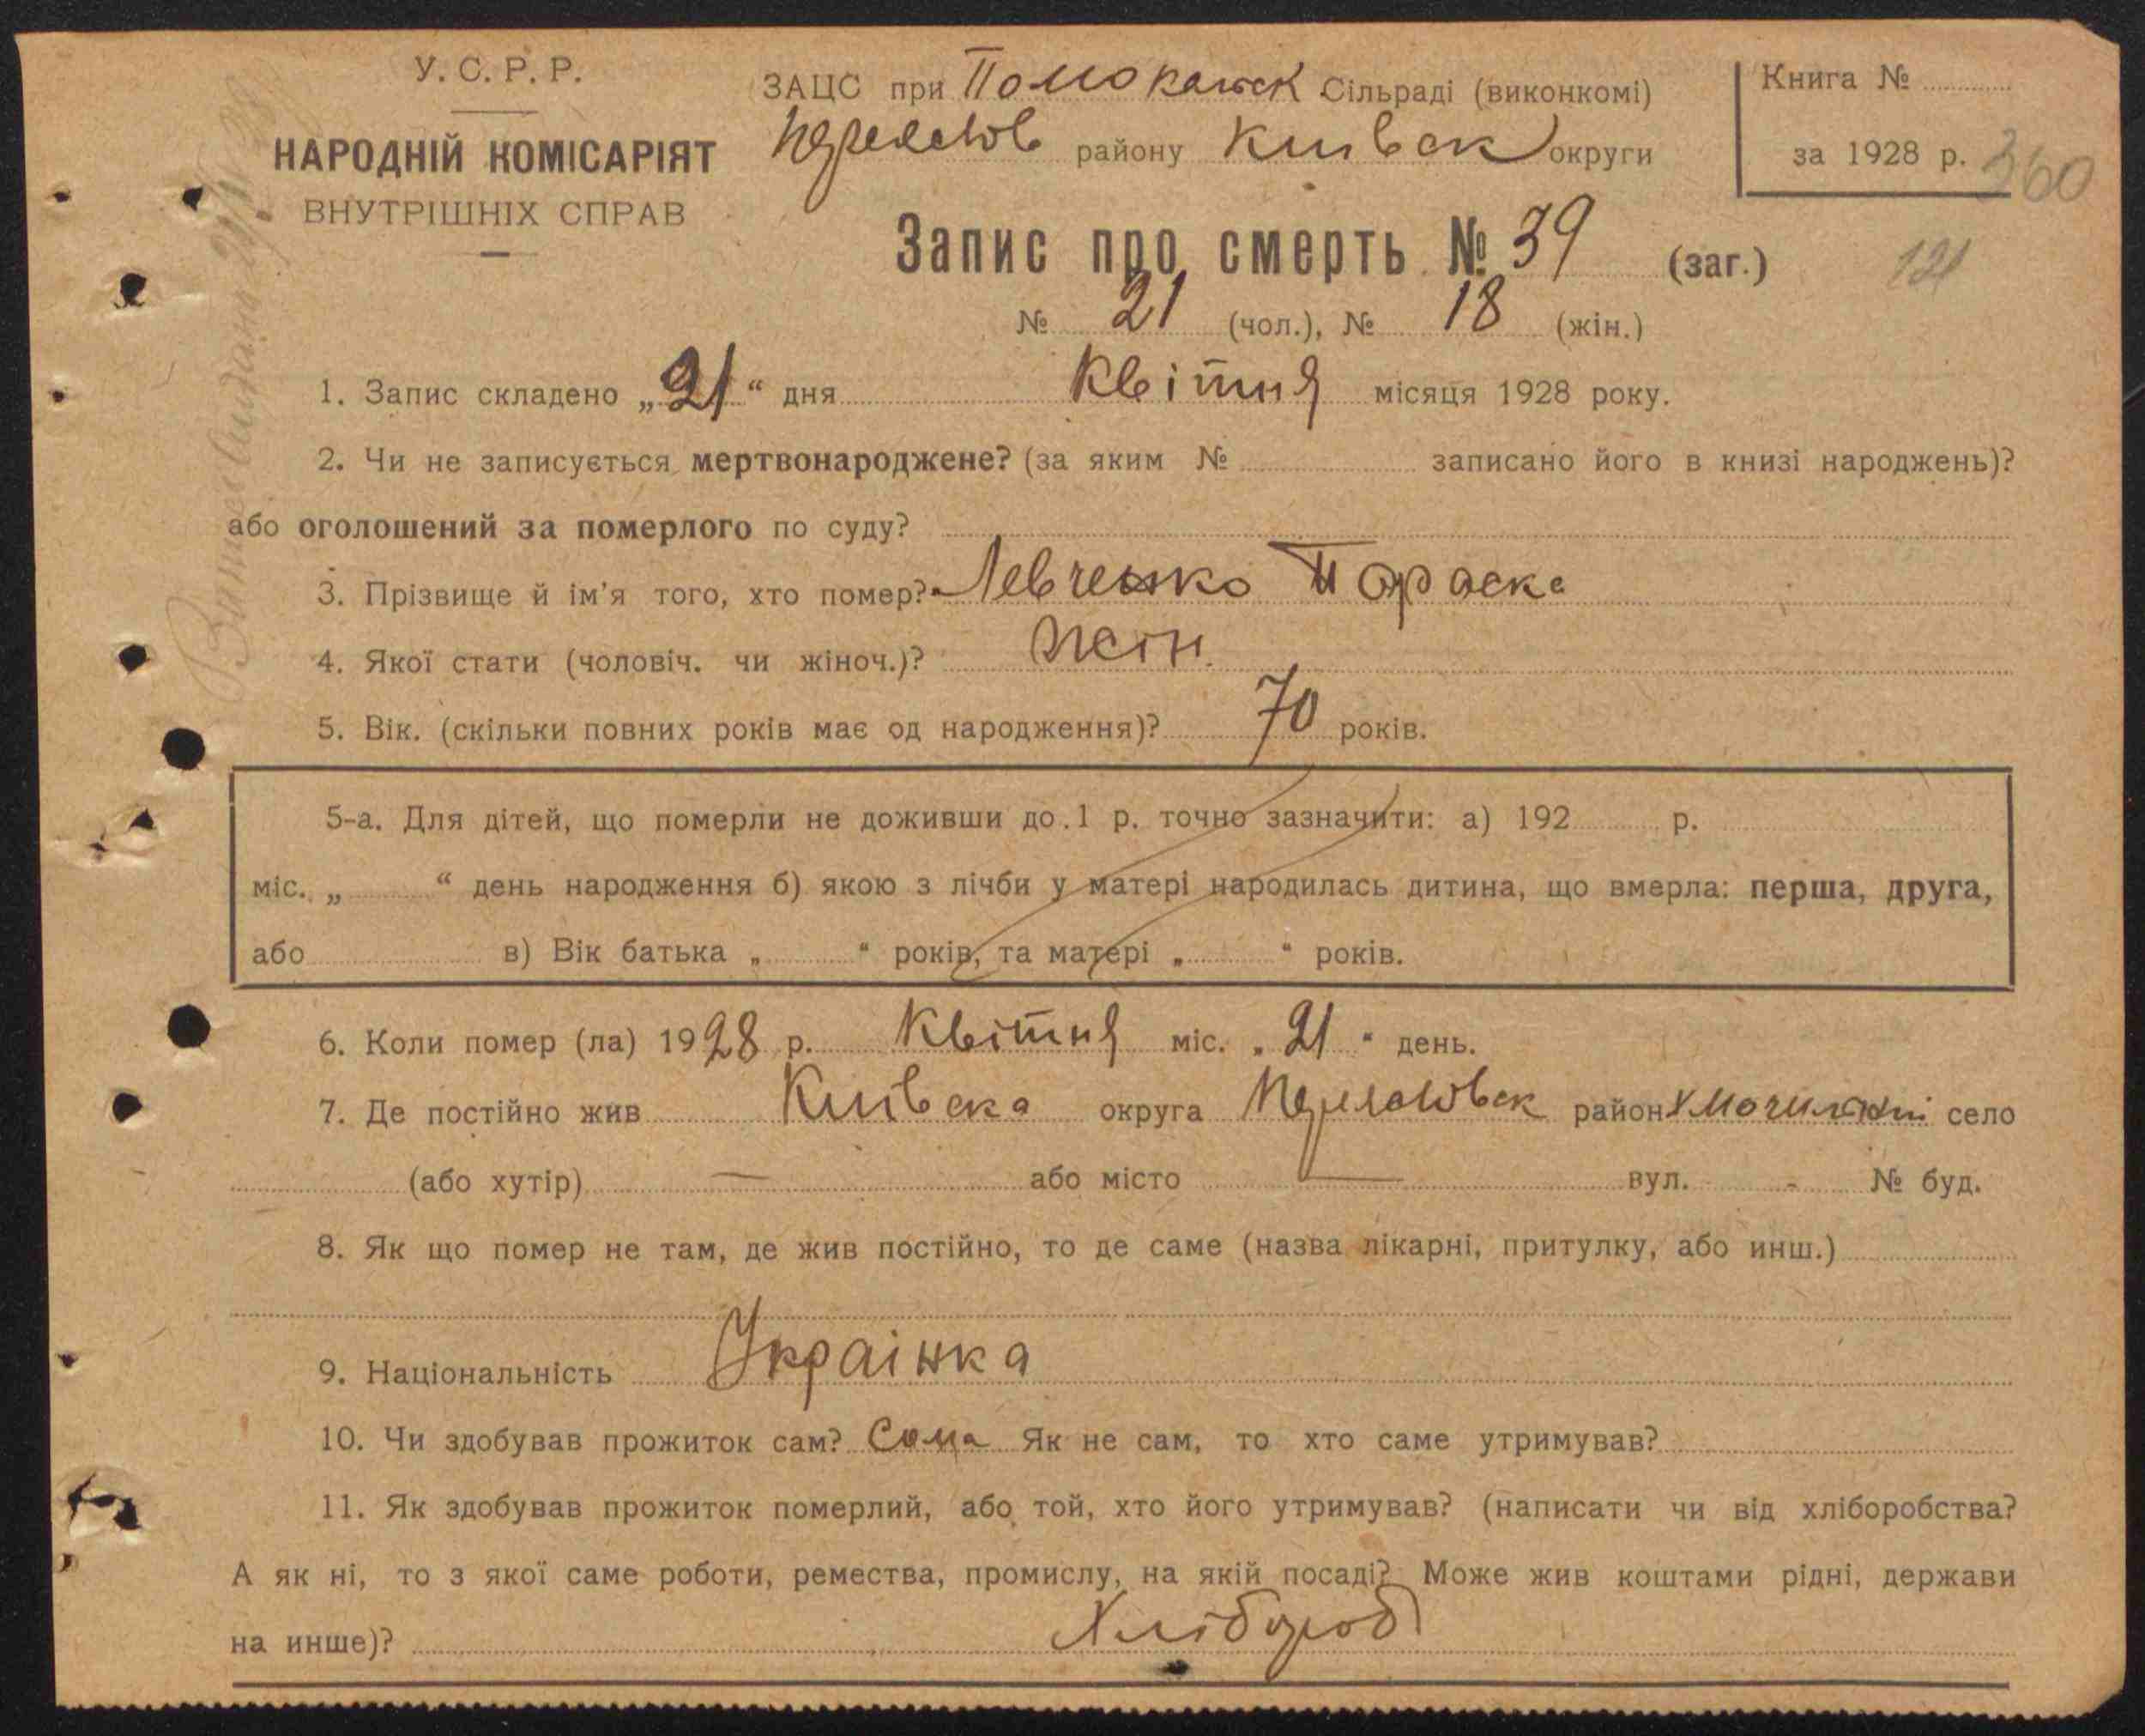 У. С. Р. Р.
НАРОДНІЙ КОМІСАРІЯТ
ВНУТРІШНІХ СПРАВ
ЗАЦС при Помокальск Сільраді (виконкомі)
району Київск округи
Книга №
за 1928 р. 360
Запис про смерть № 39 (заг.) 121
№ 21 (чол.), № 18 (жін.)
1. Запис складено „21“ дня Квітня місяця 1928 року.
2. Чи не записується мертвонароджене? (за яким № записано його в книзі народжень)?
або оголошений за померлого по суду?
3. Прізвище й ім'я того, хто помер? Левченко Параска
4. Якої стати (чоловіч. чи жіноч.)? жін.
5. Вік. (скільки повних років має од народження)? 70 років.
5-а. Для дітей, що померли не доживши до 1 р. точно зазначити: а) 192 р.
міс. „ “ день народження б) якою з лічби у матері народилась дитина, що вмерла: перша, друга,
або в) Вік батька „ “ років, та матері „ “ років.
6. Коли помер (ла) 1928 р. Квітня міс. „21“ день.
7. Де постійно жив Київска округа район село
(або хутір) — або місто — вул. - № буд.
8. Як що помер не там, де жив постійно, то де саме (назва лікарні, притулку, або инш.)
9. Національність Украінка
10. Чи здобував прожиток сам? Сама Як не сам, то хто саме утримував?
11. Як здобував прожиток померлий, або той, хто його утримував? (написати чи від хліборобства?
А як ні, то з якої саме роботи, ремества, промислу, на якій посаді? Може жив коштами рідні, держави
на инше)? Хлібороб